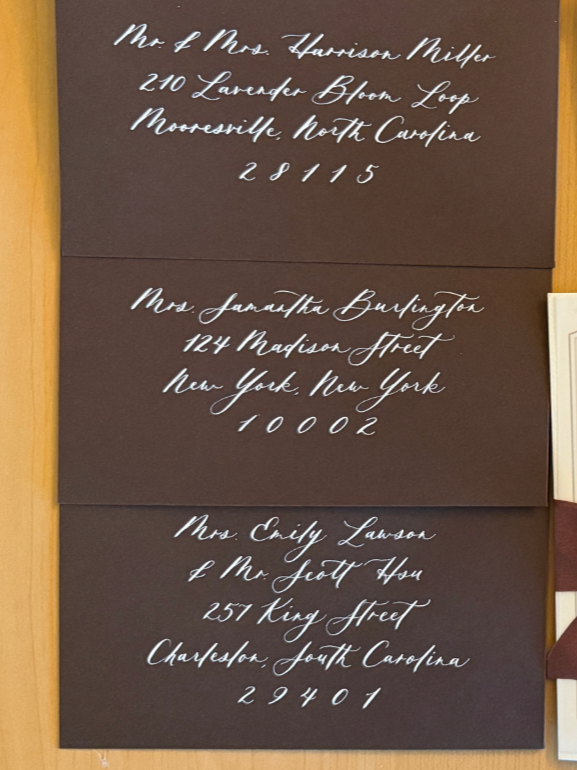 Mr. & Mrs. Harrison Miller
210 Lavender Bloom Loop
Mooresville, North Carolina
28115
Mrs. Samantha Burlington
124 Madison Street
New York, New York
10002
Mrs. Emily Lawson
& Mr. Scott Hsu
257 King Street
Charleston, South Carolina
29401